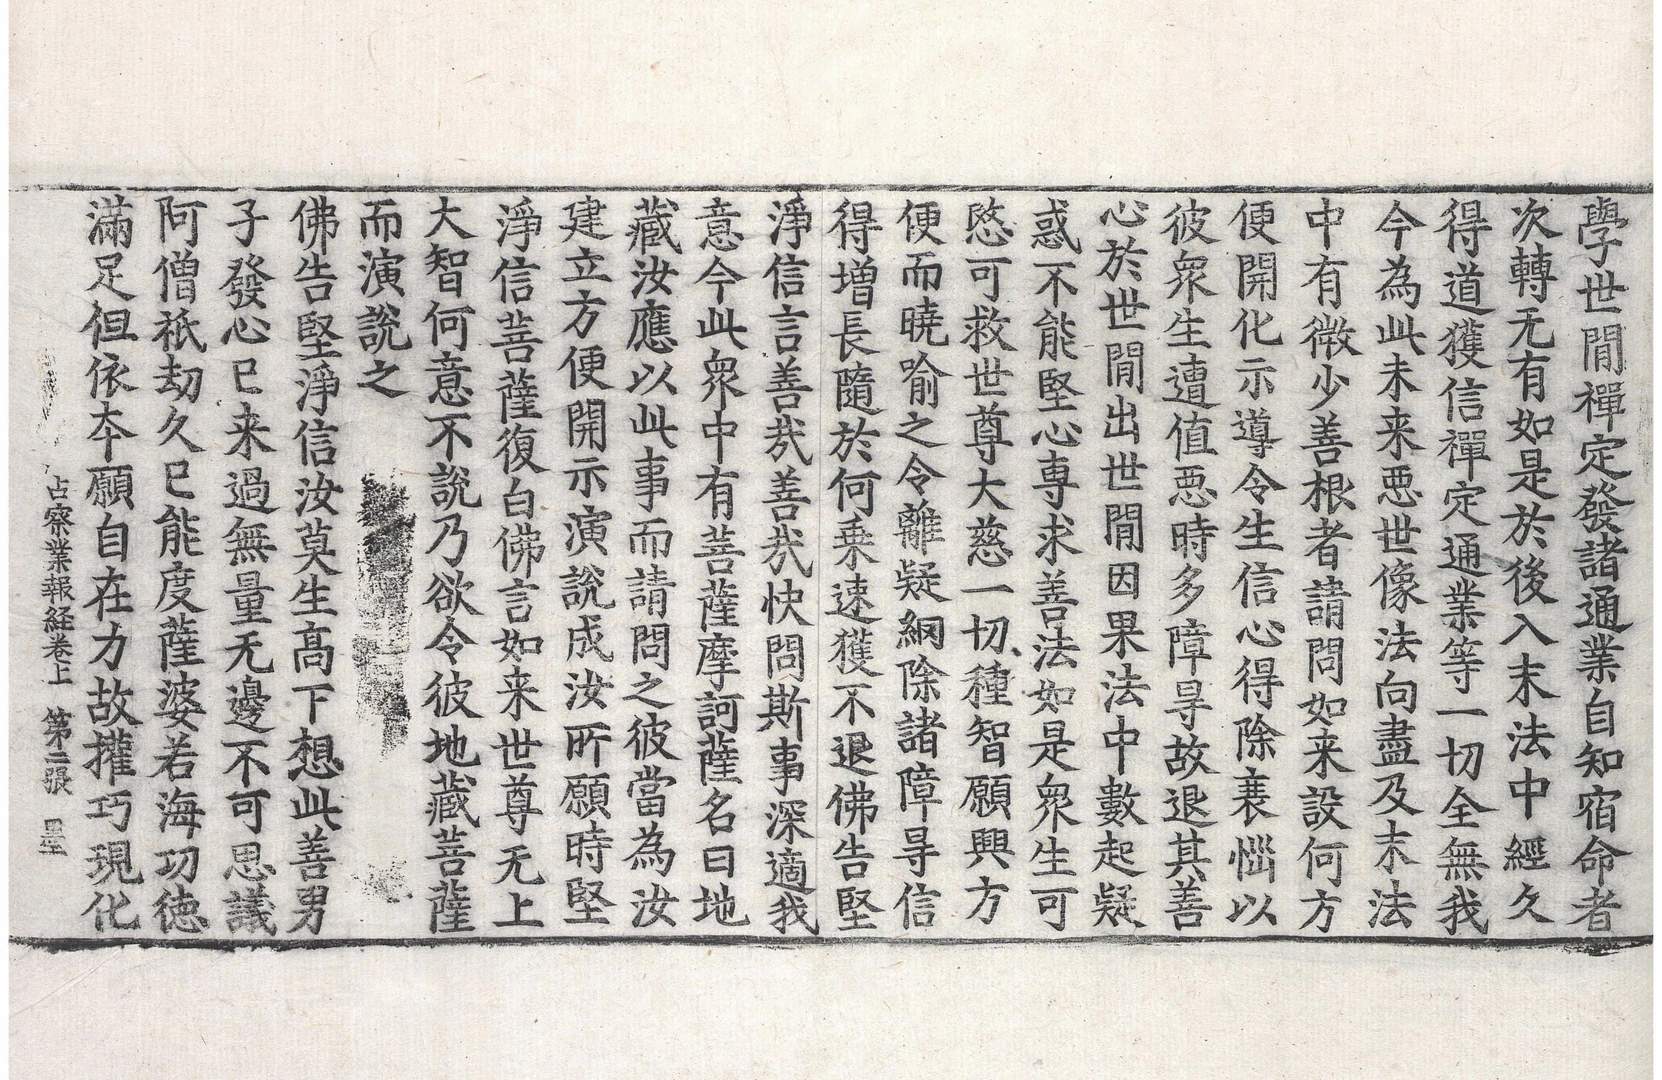 學世閒禪定發諸通業自知宿命者
次轉无有如是於後入末法中經久
得道獲信禪定通業等一切全無我
今為此未来惡世像法向盡及末法
中有微少善根者請問如来設何方
便開化示導令生信心得除衰惱以
彼衆生遭值惡時多障㝵故退其善
心於世閒出世閒因果法中數起疑
惑不能堅心専求善法如是衆生可
愍可救世尊大慈一切種智願興方
便而曉喻之令離疑網除諸障㝵信
得增長隨於何乗速獲不退佛告堅
淨信言善㢤善㢤快問斯事深適我
意今此衆中有菩薩摩訶薩名曰地
藏汝應以此事而請問之彼當為汝
建立方便開示演說成汝所願時堅
淨信菩薩復白佛言如来世尊无上
大智何意不說乃欲令彼地藏菩薩
而演說之
佛告堅淨信汝莫生高下想此善男
子發心已来過無量无邊不可思議
阿僧祇劫久已能度薩婆若海功徳
滿足但依本願自在力故攉巧現化
占察業報経卷上　第二張　墨